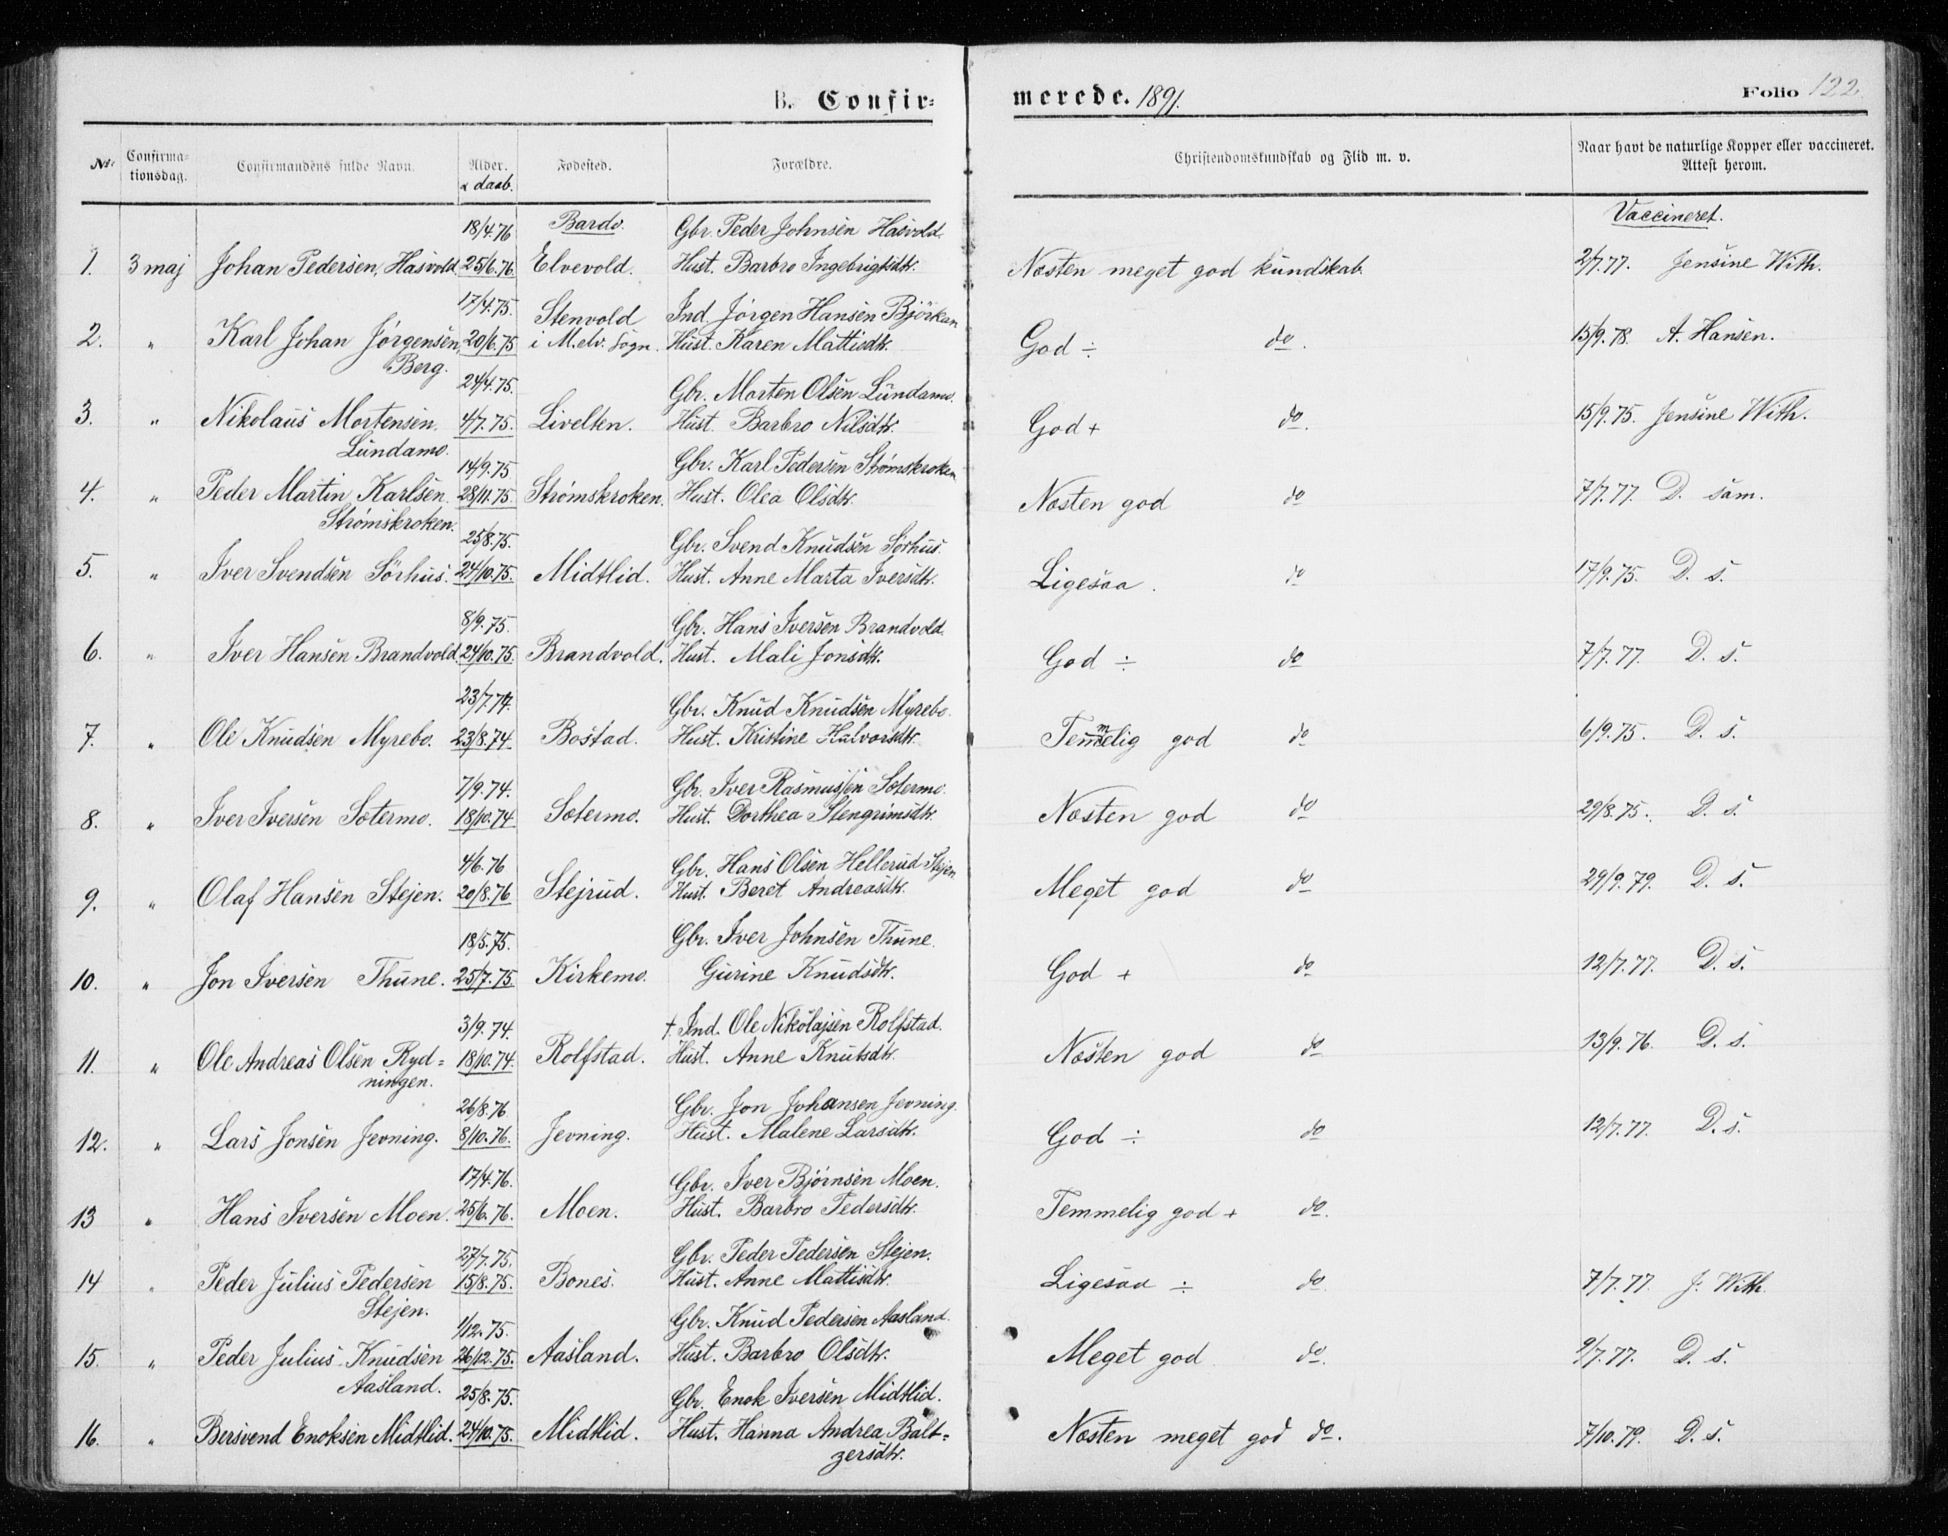 B. Confir= merede. 1891. Folio 122.
No. Confirma-tionsdag. Confirmandens fulde Navn. Alder. & daab. Fødested. Forældre. Christendomskundskab og Flid m. v. Naar havt de naturlige Kopper eller vaccineret. Attest herom.
18/4.76 Bardo. Gbr. Peder Johnsen Hasvold. Vaccineret.
1. 3 maj Johan Pedersen Hasvold 25/6.76. Elvevold. Hust. Barbro Ingebrigtsdtr. Næsten meget god kundskab. 2/7.77. Jensine With.
17/4.75. Stenvold Ind. Jørgen Hansen Bjørkan
2. " Karl Johan Jørgensen, 20/6.75 i M.elv. Sogn. Hust. Karen Mattisdtr. God ÷ do. 15/9.78. A. Hansen.
Berg. 24/4.75. Gbr. Morten Olsen Lundamo.
3. " Nikolaus Mortensen. 4/7.75. Livelten. Hust. Barbro Nilsdtr. God + do. 15/9.75. Jensine With.
Lundamo. 14/9.75 Gbr. Karl Pedersen Strømskroken
4. " Peder Martin Karlsen 28/11.75. Strømskroken. Hust. Olea Olsdtr. Næsten god do 7/7.77. D. sam.
Strømskroken. 25/8.75. Gbr. Svend Knudsen Sørhus.
5. " Iver Svendsen Sørhus. 24/10.75. Midtlid. Hust. Anne Marta Iversdtr. Ligesaa. do 17/9.75. D. s.
8/9.75. Gbr. Hans Iversen Brandvold.
6. " Iver Hansen Brandvold 24/10.75. Brandvold. Hust. Mali Jonsdtr. God ÷ do 7/7.77. D. s.
23/7.74. Gbr. Knud Knudsen Myrebo.
7. " Ole Knudsen Myrebo. 23/8.74. Bostad. Hust. Kristine Halvorsdtr. Temmelig god do 6/9.75. D. s.
7/9.74. Gbr. Iver Rasmussen Sætermo.
8. " Iver Iversen Sætermo. 18/10.74 Sætermo. Hust. Dorthea Stengrimsdtr. Næsten god do 29/8.75. D. s.
4/6.76 Gbr. Hans Olsen Hellerud Stejen
9. " Olaf Hansen Stejen. 20/8.76 Stejrud. Hust. Beret Andreasdtr. Meget god do 29/9.79. D. s.
18/5.75. Gbr. Iver Johnsen Thune.
10. " Jon Iversen Thune. 25/7.75. Kirkemo. Gurine Knudsdtr. God + do 12/7.77. D. s.
3/9.74. † Ind. Ole Nikolajsen Rolfstad.
11. " Ole Andreas Olsen Ryd= 18/10.74. Rolfstad. Hust. Anne Knutsdtr. Næsten god do 13/9.76. D. s.
ningen. 26/8.76 Gbr. Jon Johansen Jevning.
12. " Lars Jonsen Jevning. 8/10.76. Jevning. Hust. Malene Larsdtr. God ÷ do 12/7.77. D. s.
17/4.76. Gbr. Iver Bjørnsen Moen.
13 " Hans Iversen Moen. 25/6.76. Moen. Hust. Barbro Pedersdtr. Temmelig god + do.
27/7.75. Gbr. Peder Pedersen Stejen.
14 " Peder Julius Pedersen 15/8.75. Bones. Hust. Anne Mattisdtr. Ligesaa ÷ do 7/7.77. J. With.
Stejen. 1/12.75. Gbr. Knud Pedersen Aasland.
15. " Peder Julius Knudsen 26/12.75. Aasland. Hust. Barbro Olsdtr. Meget god do. 9/7.77. D. s.
Aasland. 25/8.75. Gbr. Enok Iversen Midtlid.
16. " Bersvend Enoksen Midtlid. 24/10.75. Midtlid. Hust. Hanna Andrea Balt= Næsten meget god do. 7/10.79. D. s.
zersdtr.